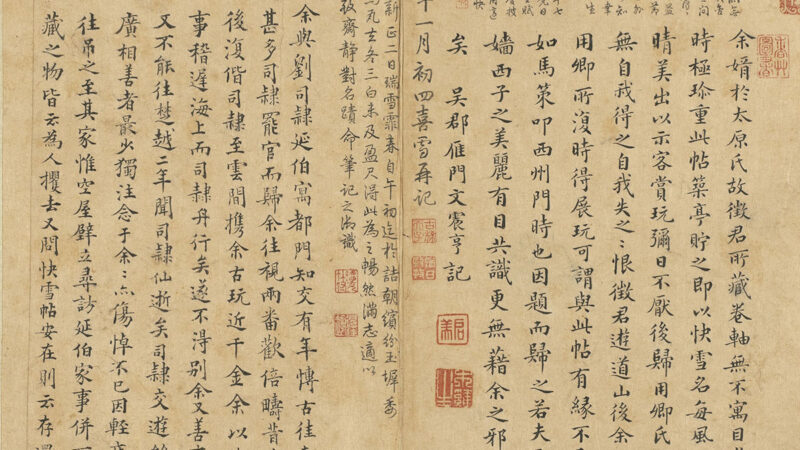 余婿於太原氏故徵君所藏卷軸無不寓目
時極珍重此帖築亭貯之即以快雪名每風
晴美出以示客賞玩彌日不厭後歸用卿氏
無自我得之自我失之〻恨徵君遊道山後余
用卿所復時得展玩可謂與此帖有緣不
如馬策叩西州門時也因題而歸之若夫
嬙西子之美麗有目共識更無藉余之邪
矣 吳郡雁門文震亨記
十一月初四喜雪再記
新正二日瑞雪霏春自午初迄於詰朝繽紛玉墀委
去冬三白未及盈尺得此為之暢然滿志適以
齋靜對名蹟命筆記之御識
余與劉司隸延伯寓都門知交有年博古往
甚多司隸罷官而歸余往視兩番歡倍疇昔
後復偕司隸至雲間攜余古玩近千金余以
事稽遲海上而司隸舟行矣遂不得別余又善
又不能往楚越二年聞司隸仙逝矣司隸交遊
廣相善者最少獨注念于余〻亦傷悼不已因輕
往吊之至其家惟空屋壁立尋訪延伯家事併
藏之物皆云為人攫去又問快雪帖安在則云存